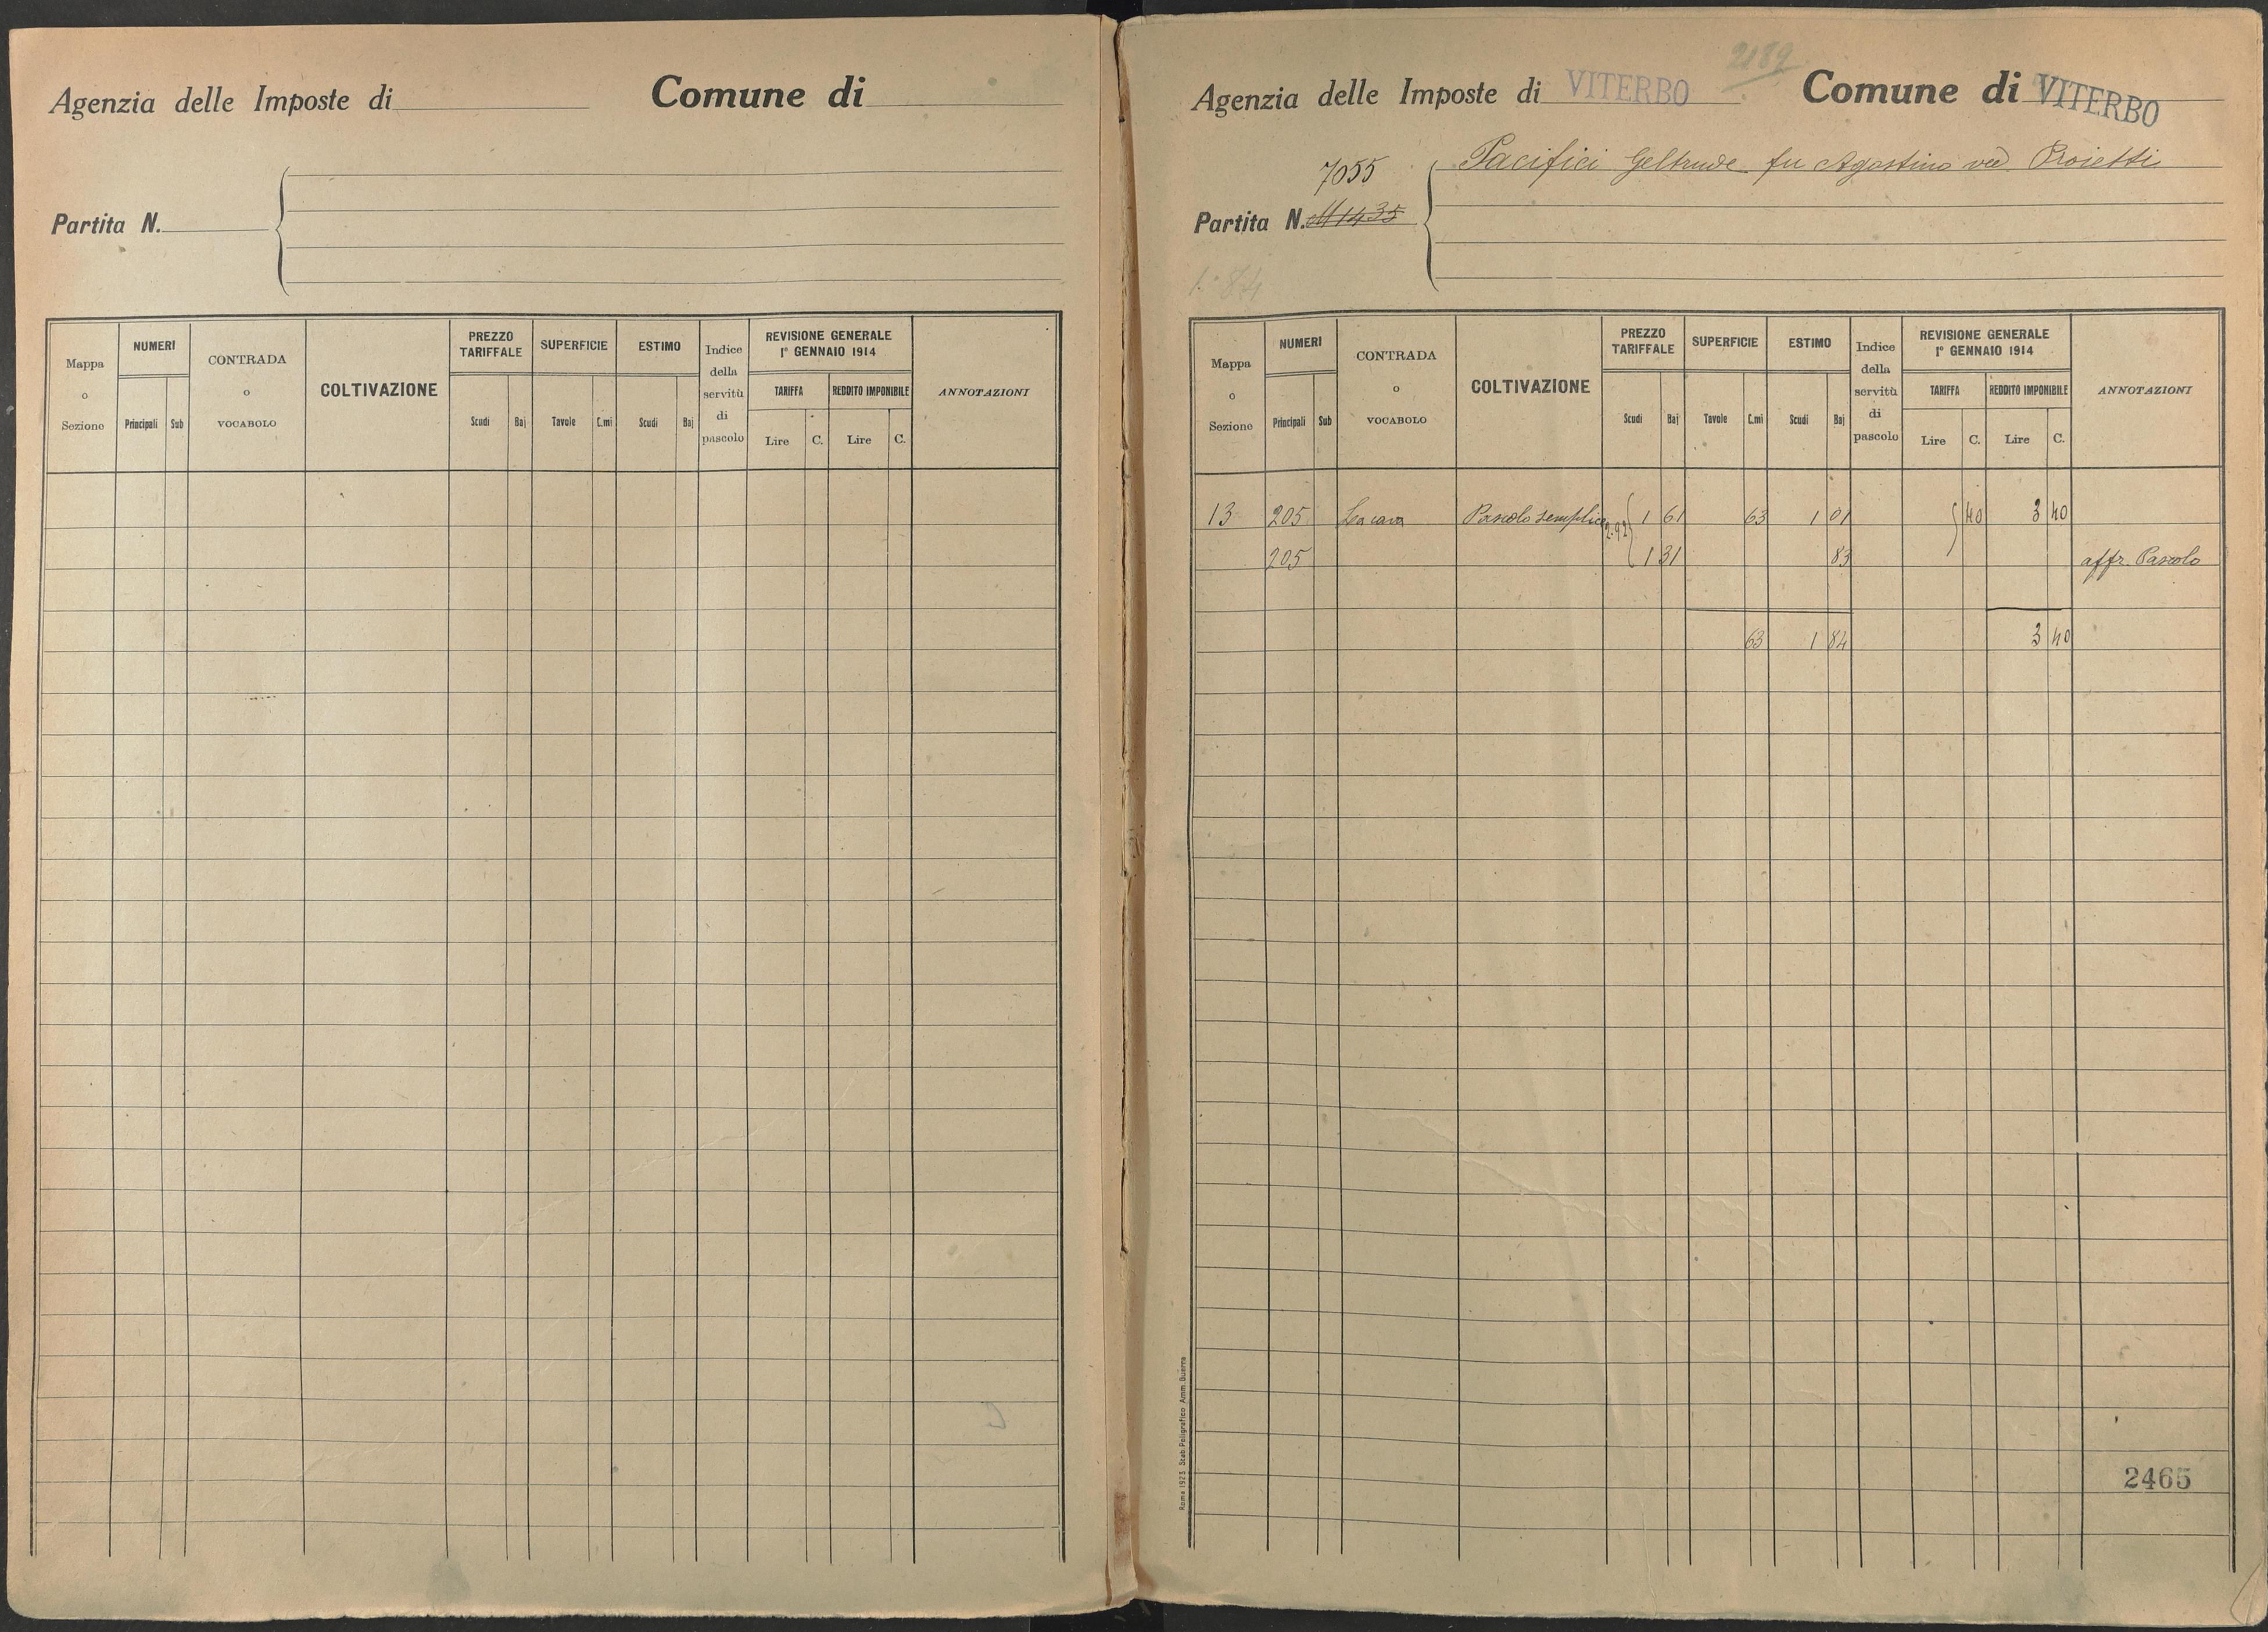 Agenzia delle Imposte di Comune di
Partita N.
Mappa o Sezione
NUMERI
Principali Sub
CONTRADA o VOCABOLO
COLTIVAZIONE
PREZZO TARIFFALE
Scudi Baj
SUPERFICIE
Tavole C.mi
ESTIMO
Scudi Baj
Indice della servitù di pascolo
REVISIONE GENERALE
1° GENNAIO 1914
TARIFFA REDDITO IMPONIBILE
Lire C. Lire C.
ANNOTAZIONI
2189
Agenzia delle Imposte di VITERBO Comune di VITERBO
Pacifici Geltrude fu Agostino ved. Proietti
7055
Partita N. 11435
1.84
Mappa o Sezione
NUMERI
Principali Sub
CONTRADA o VOCABOLO
COLTIVAZIONE
PREZZO TARIFFALE
Scudi Baj
SUPERFICIE
Tavole C.mi
ESTIMO
Scudi Baj
Indice della servitù di pascolo
REVISIONE GENERALE
1° GENNAIO 1914
TARIFFA REDDITO IMPONIBILE
Lire C. Lire C.
ANNOTAZIONI
13 205 La cava Pascolo semplice 2.92 1 61 63 1 01 40 3 40
205 1 31 83 affr. Pascolo
63 1 84 3 40
2465
Roma 1923 Stab. Poligrafico Amm. Guerra